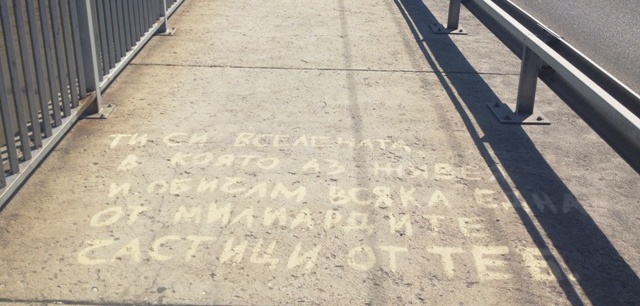 ТИ СИ ВСЕЛЕНАТА
В КОЯТО АЗ ЖИВЕЯ
И ОБИЧАМ ВСЯКА ЕДНА
ОТ МИЛИАРДИТЕ
ЧАСТИЦИ ОТ ТЕБ.